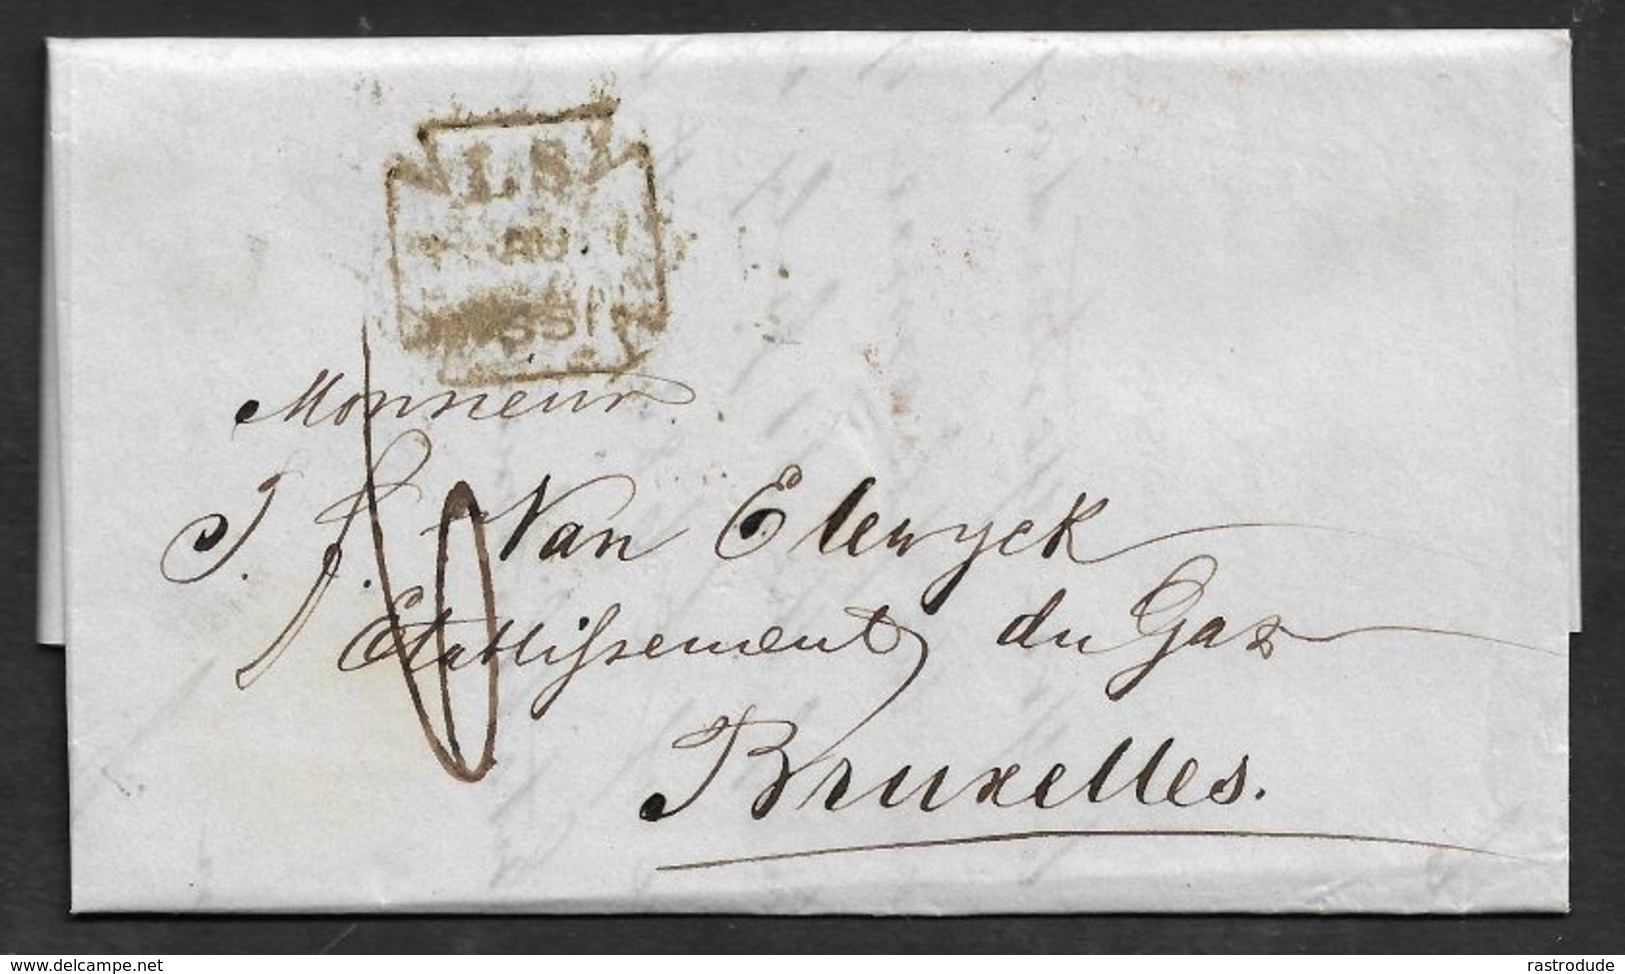 LS
AU
1
55
Monsieur
J. J. Van Elewyck
Etablissement du Gaz
10
Bruxelles.
www.delcampe.net
rastrodude